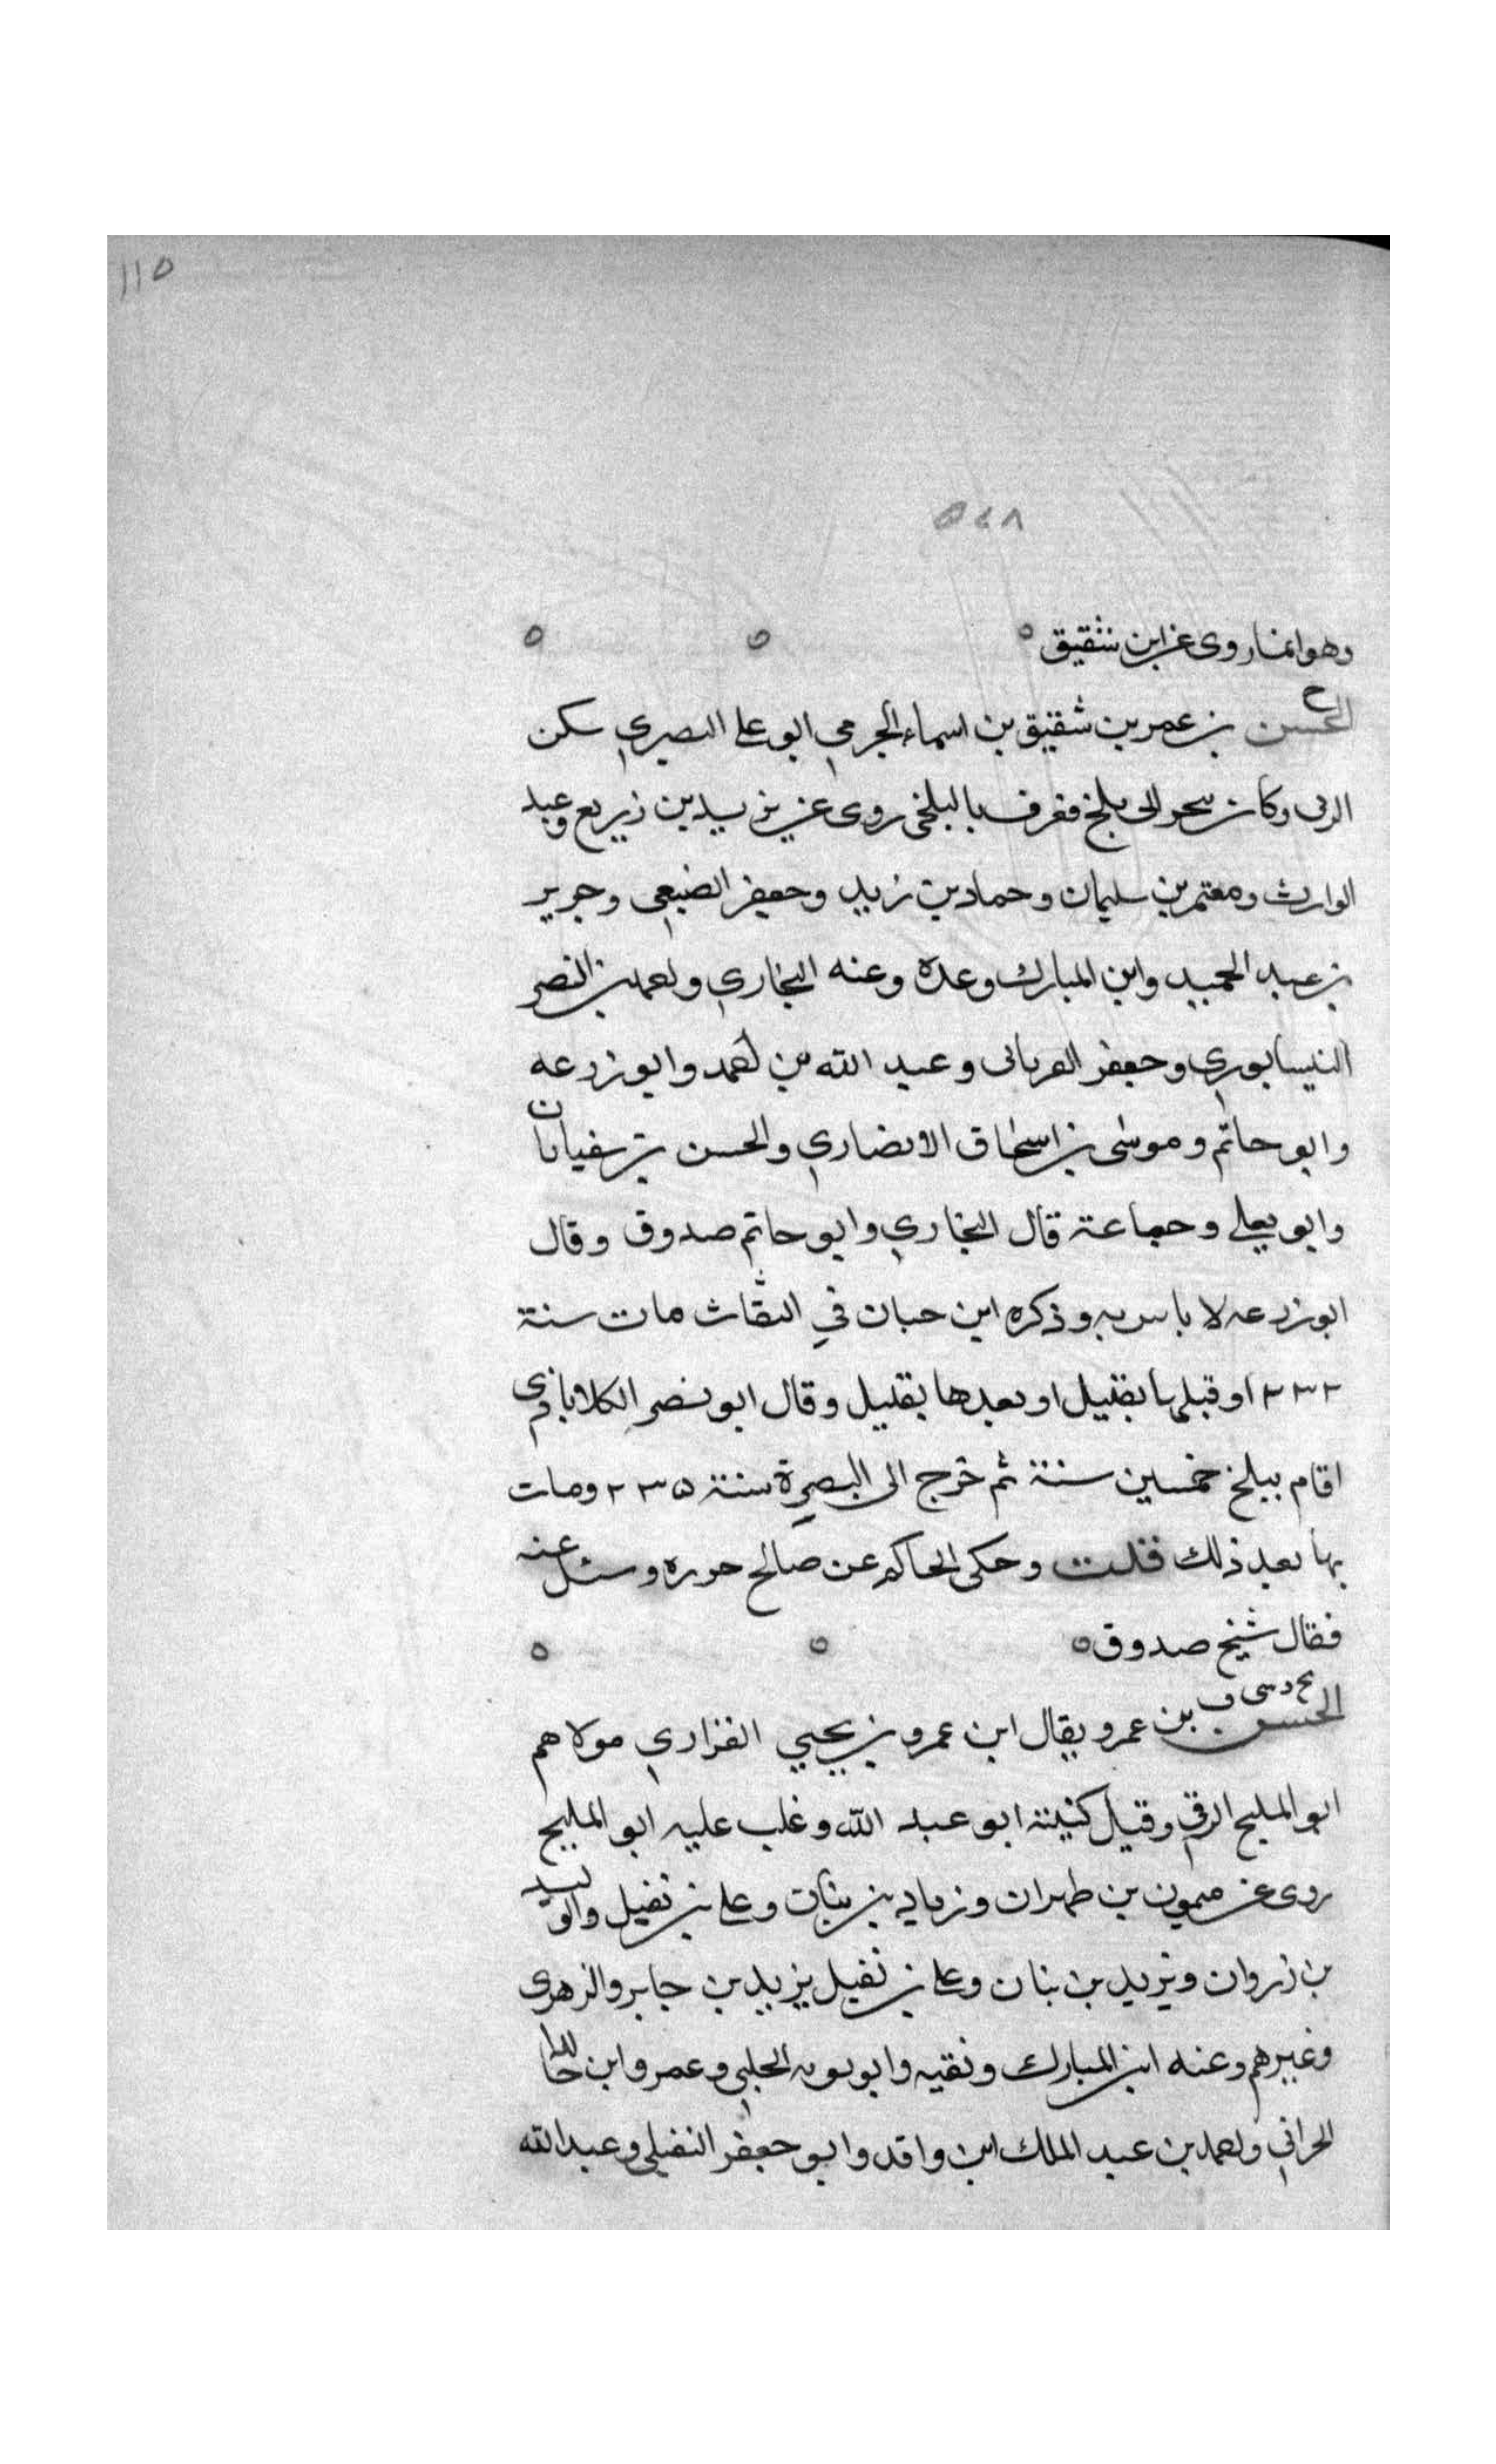 ١١٥
٥٤٨
وهو انما روى عن ابن شقيق ٥ ٥ ٥
خ
الحسن بن عمر بن شقيق بن اسماء الجرمي ابو علي البصري سكن
الرى وكان يتجر الى بلخ فعرف بالبلخي روى عن يزيد بن زريع وعبد
الوارث ومعتمر بن سليمان وحماد بن زيد وجعفر الضبعي وجرير
بن عبد الحميد وابن المبارك وعدة وعنه البخاري واحمد بن النضر
النيسابوري وجعفر الفريابى وعبد الله بن احمد وابو زرعه
وابو حاتم وموسى بن اسحاق الانصاري والحسن بن سفيان
وابو يعلي وجماعة قال البخاري وابو حاتم صدوق وقال
ابو زرعه لا باس به وذكره ابن حبان في الثقاث مات سنة
٢٣٢ او قبلها بقليل او بعدها بقليل وقال ابو نصر الكلاباذى
اقام ببلخ خمسين سنة ثم خرج الى البصرة سنة ٢٣٥ ومات
بها بعد ذلك قلت وحكى الحاكم عن صالح حوره وسئل عنه
فقال شيخ صدوق ٥ ٥ ٥
بخ د سى ق
الحسن بن عمر ويقال ابن عمرو بن يحيي الفزاري مولاهم
ابو المليح الرقي وقيل كنيته ابو عبد الله وغلب عليه ابو المليح
روى عن ميمون بن طهران وزياد بن بنان وعلي بن نفيل والوليد
بن زروان ويزيد بن بنان وعلي بن نفيل يزيد بن جابر والزهرى
وغيرهم وعنه ابن المبارك وبقيه وابو توبه الحلبي وعمرو ابن خالد
الحراني واحمد بن عبد الملك ابن واقد وابو جعفر النفيلي وعبد الله